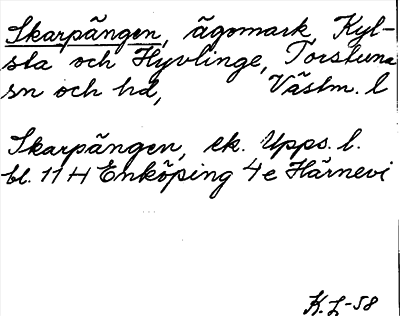 Skarpängen, ägomark, Kyl-
sta och Hyvlinge, Torstuna
sn och hd, Västm. l
Skarpängen, ek. Upps. l.
bl. 11 H Enköping 4 e Härnevi
K. L-58